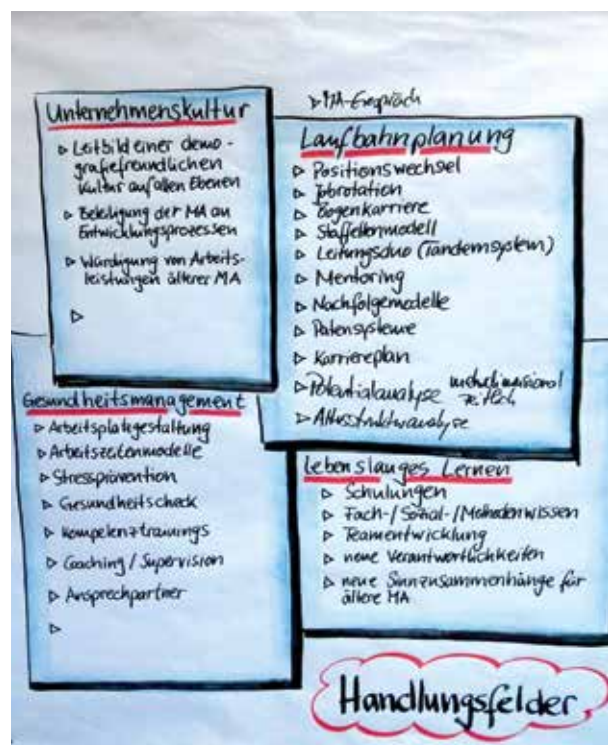 Unternehmenskultur
▷ Leitbild einer demo-
grafiefreundlichen
Kultur auf allen Ebenen
▷ Beteiligung der MA an
Entwicklungsprozessen
▷ Würdigung von Arbeits-
leistungen älterer MA
▷
▷ MA-Gespräch
Laufbahnplanung
▷ Positionswechsel
▷ Jobrotation
▷ Bogenkarriere
▷ Staffettenmodell
▷ Leitungsduo (Tandemsystem)
▷ Mentoring
▷ Nachfolgemodelle
▷ Patensysteme
▷ Karriereplan
▷ Potentialanalyse
▷ Altersstrukturanalyse
Gesundheitsmanagement
▷ Arbeitsplatzgestaltung
▷ Arbeitszeitenmodelle
▷ Stressprävention
▷ Gesundheitscheck
▷ Kompetenztrainings
▷ Coaching / Supervision
▷ Ansprechpartner
▷
Lebenslanges Lernen
▷ Schulungen
▷ Fach-/Sozial-/Methodenwissen
▷ Teamentwicklung
▷ neue Verantwortlichkeiten
▷ neue Sinnzusammenhänge für
ältere MA
Handlungsfelder